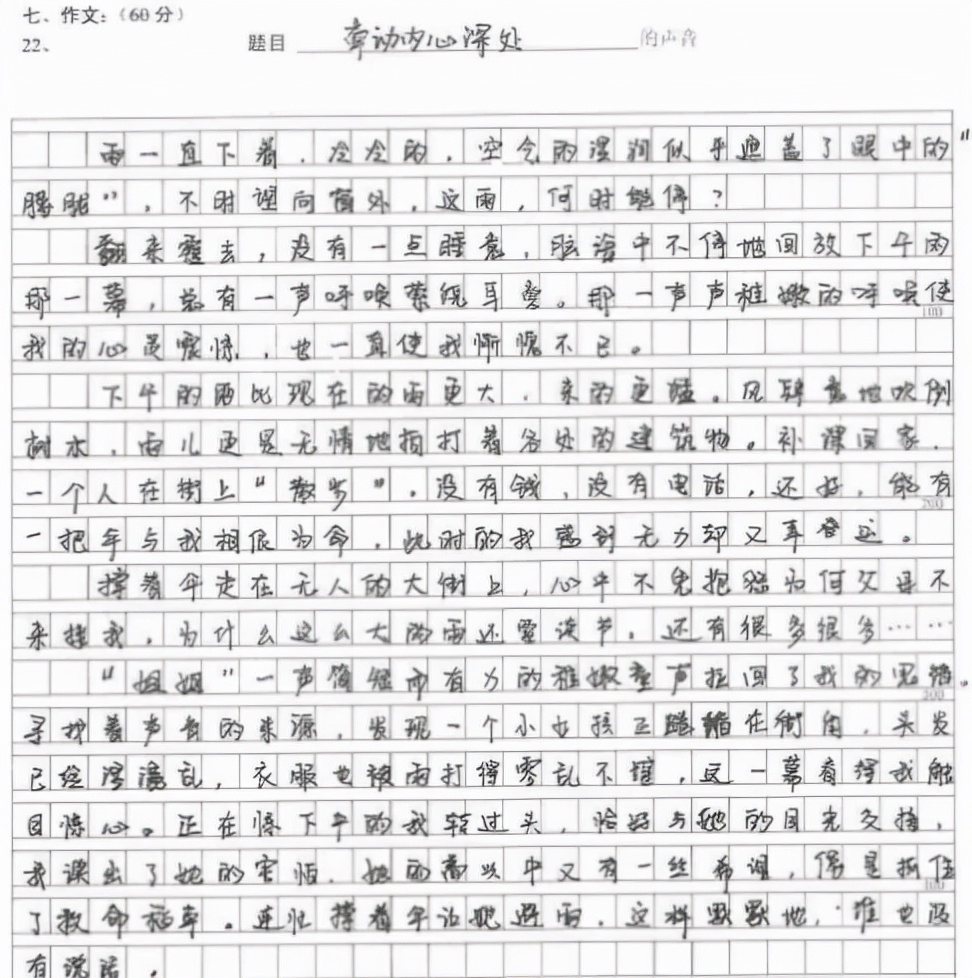 七、作文:(60分)
22、 题目 牵动内心深处 的声音
雨一直下着,冷冷的,空气的湿润似乎遮盖了眼中的"
朦胧",不时望向窗外,这雨,何时能停?
翻来覆去,没有一点睡意,脑海中不停地回放下午雨
那一幕,总有一声呼唤萦绕耳旁。那一声声稚嫩的呼唤使
100
我的心灵震惊,也一直使我惭愧不已。
下午的雨比现在的雨更大,来的更猛。风肆意地吹倒
树木,雨儿更是无情地拍打着各处的建筑物。补课回家,
一个人在街上"散步"。没有钱,没有电话,还好,能有
200
一把伞与我相依为命,此时的我感到无力却又幸运。
撑着伞走在无人的大街上,心中不免抱怨为何父母不
来接我,为什么这么大的雨还要读书,还有很多很多……
"姐姐"一声简短而有力的稚嫩童声拉回了我的思绪。
300
寻找着声音的来源,发现一个小女孩正蹲在街角,头发
已经湿漉乱,衣服也被雨打得零乱不堪,这一幕看得我触
目惊心。正在停下的我转过头,恰好与她的目光交接,
我读出了她的害怕,她的害怕中又有一丝希望,像是抓住
400
了救命稻草。连忙撑着伞让她避雨,这样默默地,谁也没
有说话。